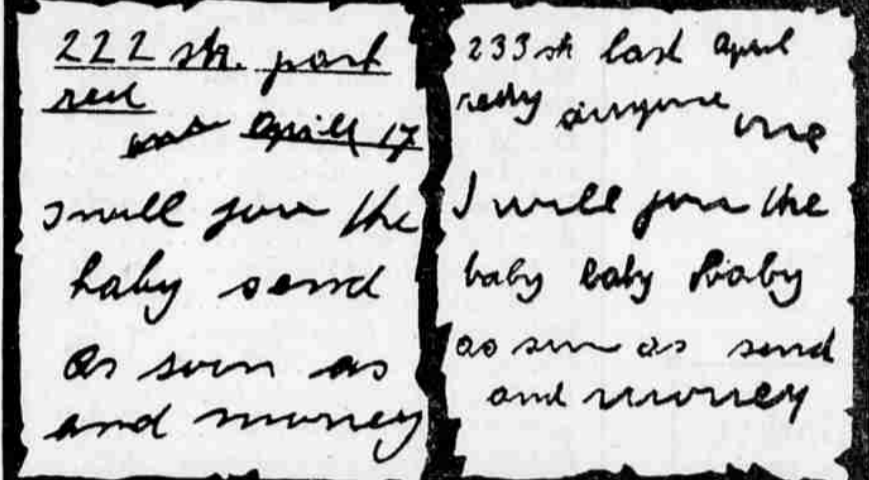 222 sth. part
red
april 17
I will your the
baby send
as soon as
and money
233 sth last april
redy anyone one
I will your the
baby baby baby
as soon as send
and money